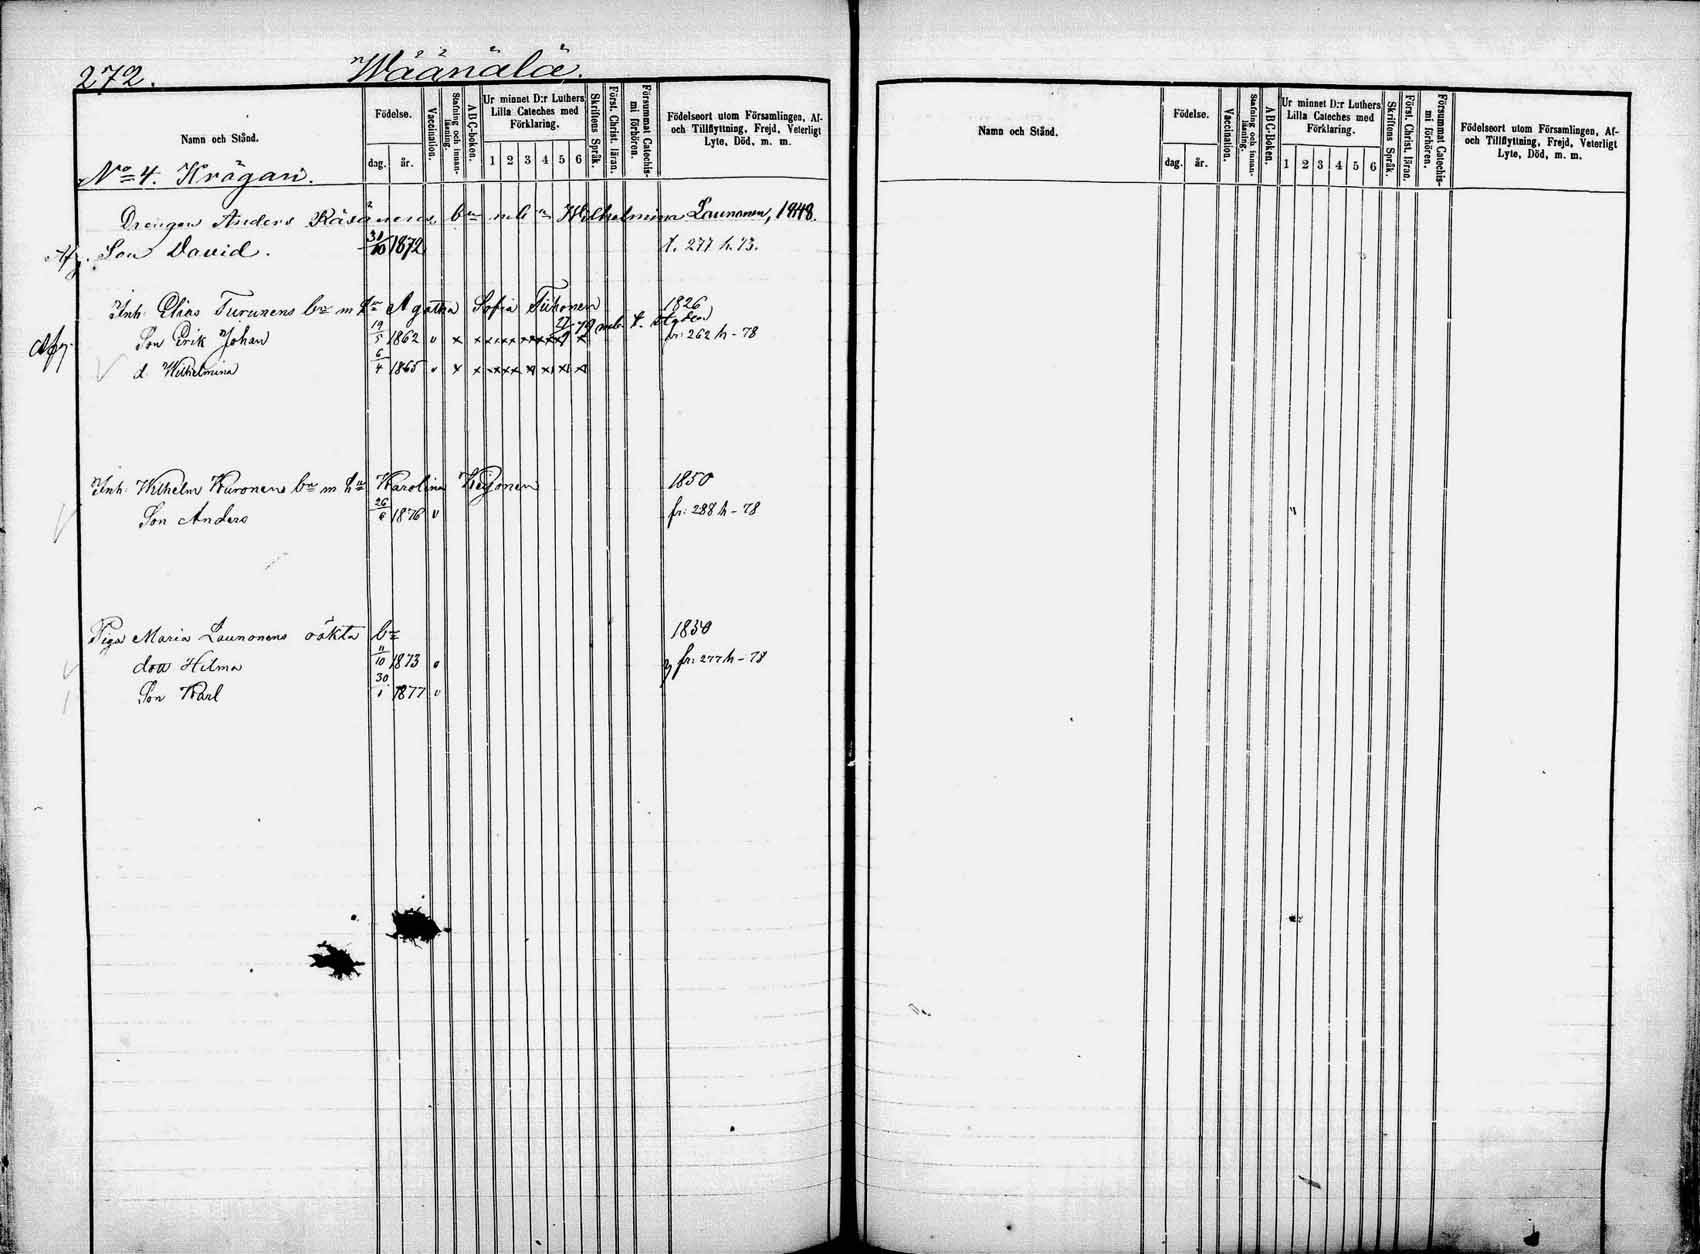 272. Wäänälä.
Namn och Stånd.
Födelse.
dag.
år.
Vaccination.
Stafning och innanläsning.
ABC-boken.
Ur minnet D:r Luthers Lilla Cateches med Förklaring.
1 2 3 4 5 6
Skriftens Språk.
Först. Christ. läran.
Försummat Catechismi förhören.
Födelseort utom Församlingen, Af- och Tillflyttning, Frejd, Veterligt Lyte, Död, m. m.
No 4. Krögan.
Drengen Anders Räsänens bn m h Wilhelmina Launonen, 1848.
Afg. Son David. 31/10 1872 t. 277 h. 73.
Inh. Elias Turunens bn m hn Agatha Sofia Tiihonen 1826
Afg. Son Erik Johan 19/5 1862 v x x x x x x x x x fr: 262 h - 78
d. Wilhelmina 6/4 1865 v x x x x x x x x x
Inh: Wilhelm Kuronens bn m hn Karolina Keijonen 1850
Son Anders 26/6 1876 v fr: 288 h - 78
Piga Maria Launonens oäkta bn 1850
dotr Hilma 11/10 1873 v fr: 277 h - 78
Son Karl 30/1 1877 v
Namn och Stånd.
Födelse.
dag.
år.
Vaccination.
Stafning och innanläsning.
ABC-Boken.
Ur minnet D:r Luthers Lilla Cateches med Förklaring.
1 2 3 4 5 6
Skriftens Språk.
Först. Christ. läran.
Försummat Catechismi förhören.
Födelseort utom Församlingen, Af- och Tillflyttning, Frejd, Veterligt Lyte, Död, m. m.